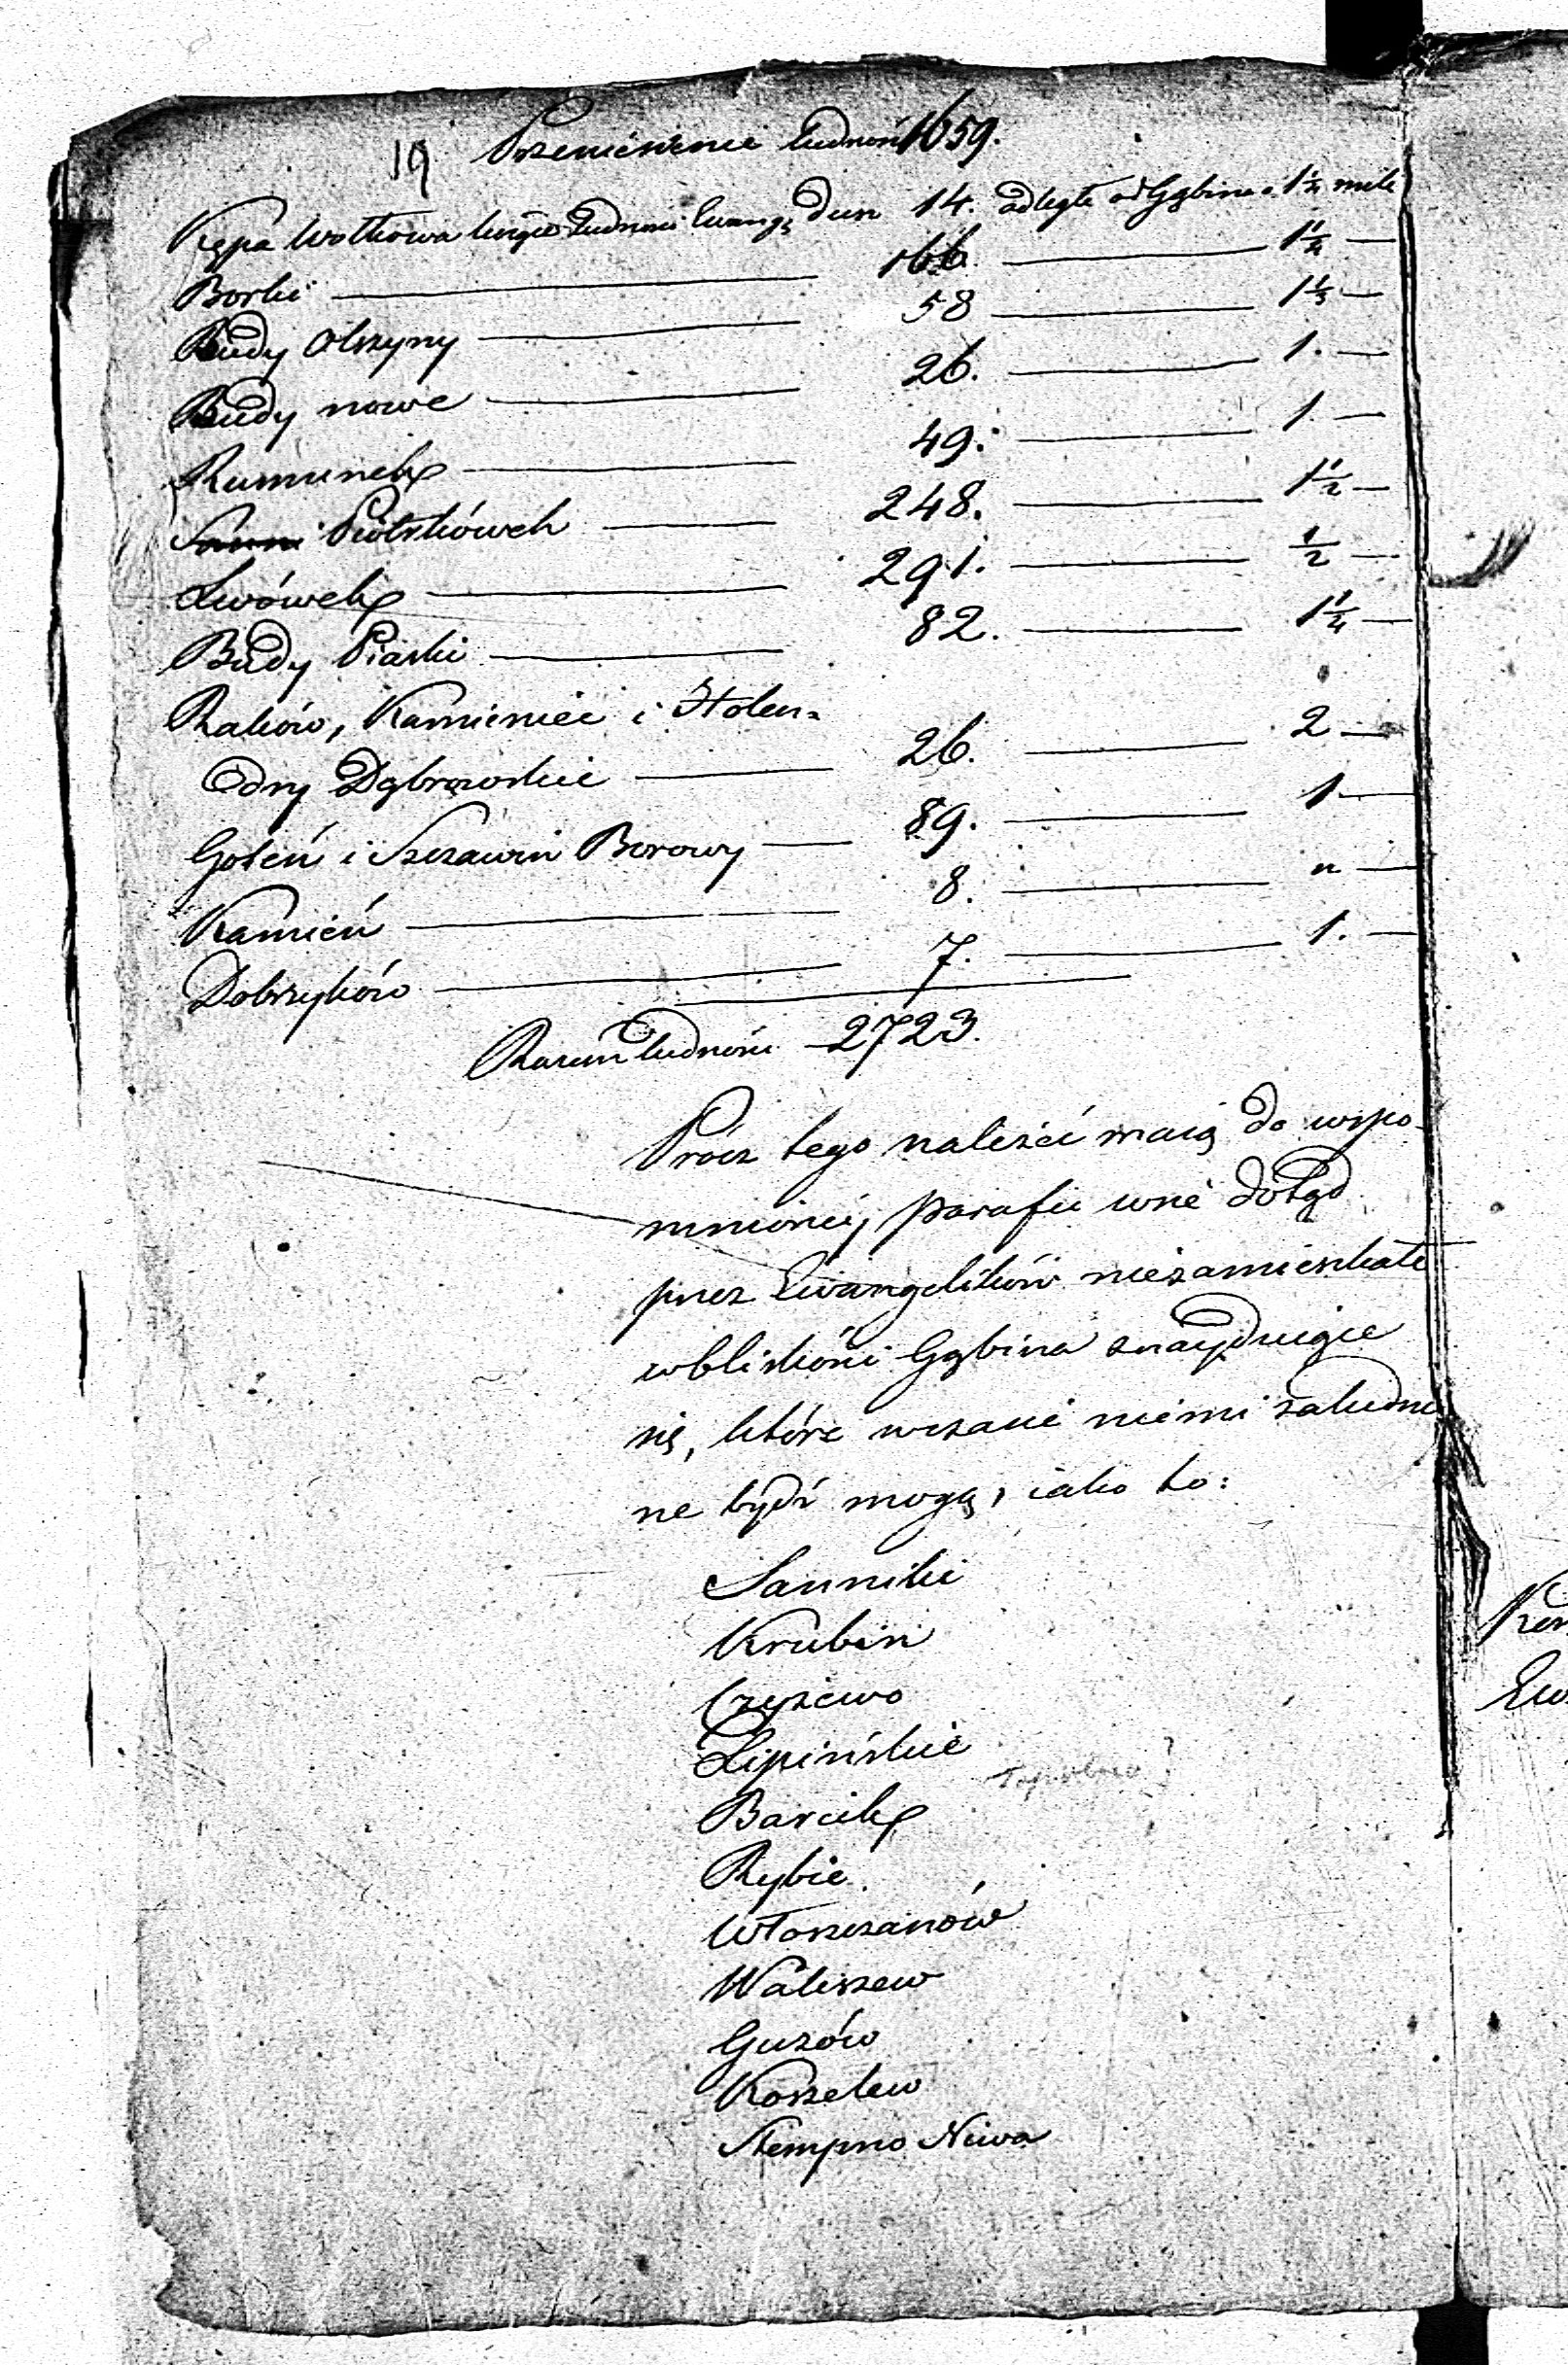 19 Przeniesienie ludności 1659.
Kępa Wolkowa licząca ludności Ewang: dusz 14. odległe od Gąbina o 1¼ mili
Borki — 166 — 1¼ —
Budy Olszyny — 58 — 1⅓ —
Budy nowe — 26. — 1. —
Rumunek — 49. — 1. —
Sanni Piotrkówek — 248. — 1½ —
Lwówek — 291. — ½ —
Budy Piaski — 82. — 1¼ —
Raków, Kamieniec i Holen-
dry Dąbrowskie — 26. — 2 —
Goleń i Szczawin Borowy — 89. — 1 —
Kamień — 8. — " —
Dobrzyków — 7. — 1. —
Razem ludności 2723.
Prócz tego należeć maią do wspo-
mnioney parafii wsie dotąd
przez Ewangelików niezamieszkałe
w bliskości Gąbina znayduiące
się, które w czasie niemi zaludnio
ne bydź mogą, iako to:
Sanniki
Krubin
Czyżewo
Lipińskie
Barcik
Rybie.
Włoszczanów
Waliszew
Guzów
Koszelew
Stempno Niwa